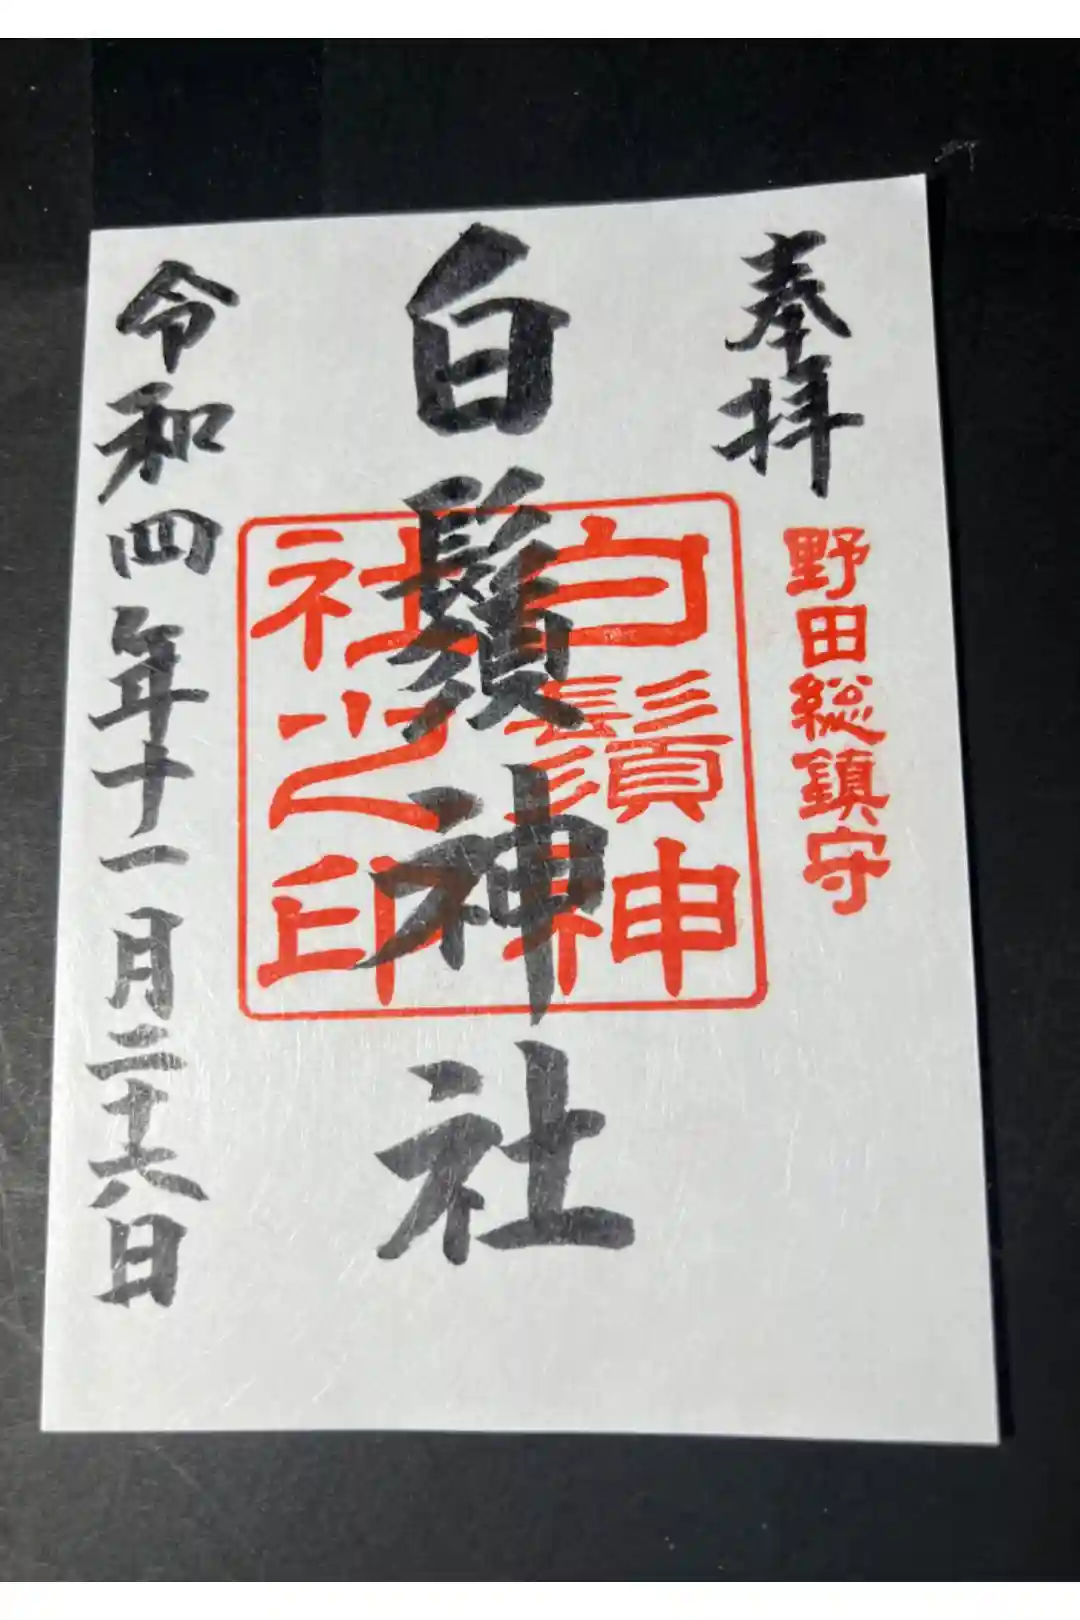 奉拝
野田総鎮守
白鬚神社
白鬚神
社之印
令和四年十一月二十六日